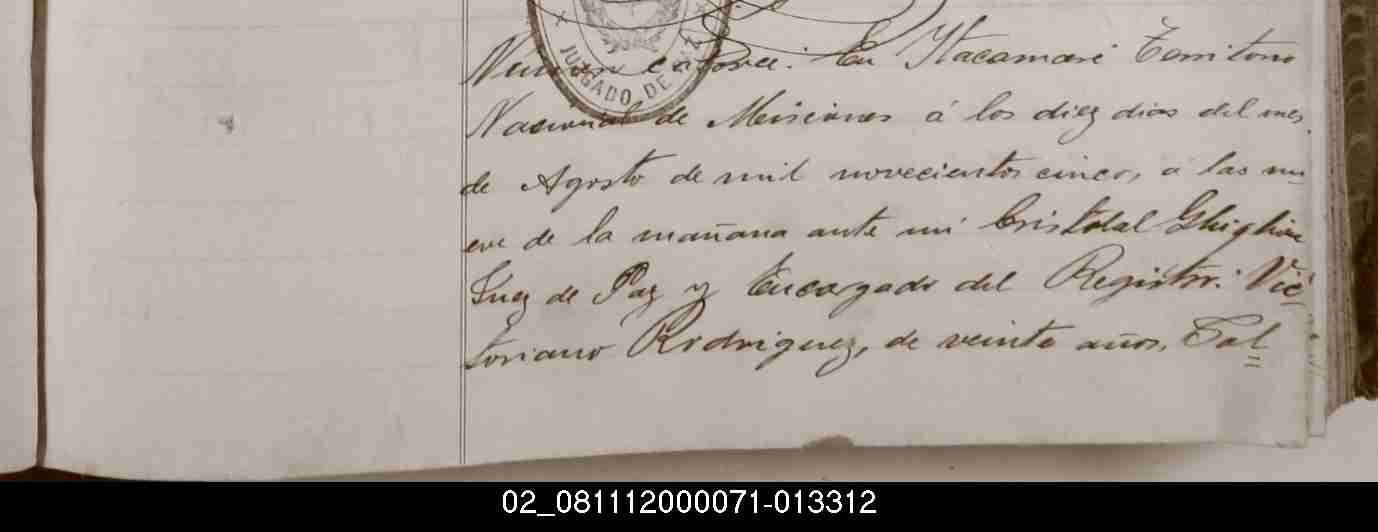 JUZGADO DE PAZ
Número catorce. En Itacaruaré Territorio
Nacional de Misiones á los diez dias del mes
de Agosto de mil novecientos cinco, á las nu-
eve de la mañana ante mi Cristobal Ghiglion
Juez de Paz y Encargado del Registro. Vic-
toriano Rodriguez, de veinte años, Sol=
02_081112000071-013312